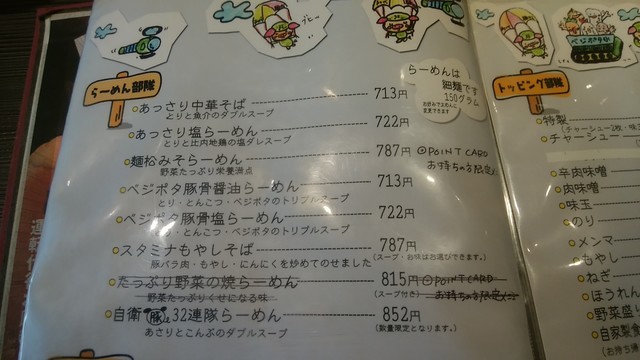 らーめん部隊
らーめんは
細麺です
150グラム
あっさり中華そば 713円
とりと魚介のダブルスープ
あっさり塩らーめん 722円
とりと比内地鶏の塩ダレスープ
麺松みそらーめん 787円 ◎POINT CARD
野菜たっぷり栄養満点 お持ちの方限定
ベジポタ豚骨醤油らーめん 713円
とり・とんこつ・ベジポタのトリプルスープ
ベジポタ豚骨塩らーめん 722円
とり・とんこつ・ベジポタのトリプルスープ
スタミナもやしそば 787円
豚バラ肉・もやし・にんにくを炒めてのせました (スープ・お味はお選びできます。)
たっぷり野菜の焼らーめん 815円 ◎POINT CARD
野菜たっぷりくせになる味 (スープ付き) お持ちの方限定
自衛豚32連隊らーめん 852円
あさりとこんぶのダブルスープ (数量限定となります。)
トッピング部隊
特製
(チャーシュー2枚・味玉
チャーシュー
辛肉味噌
肉味噌
味玉
のり
メンマ
もやし
ねぎ
ほうれん
野菜盛り
自家製
(お持ち帰